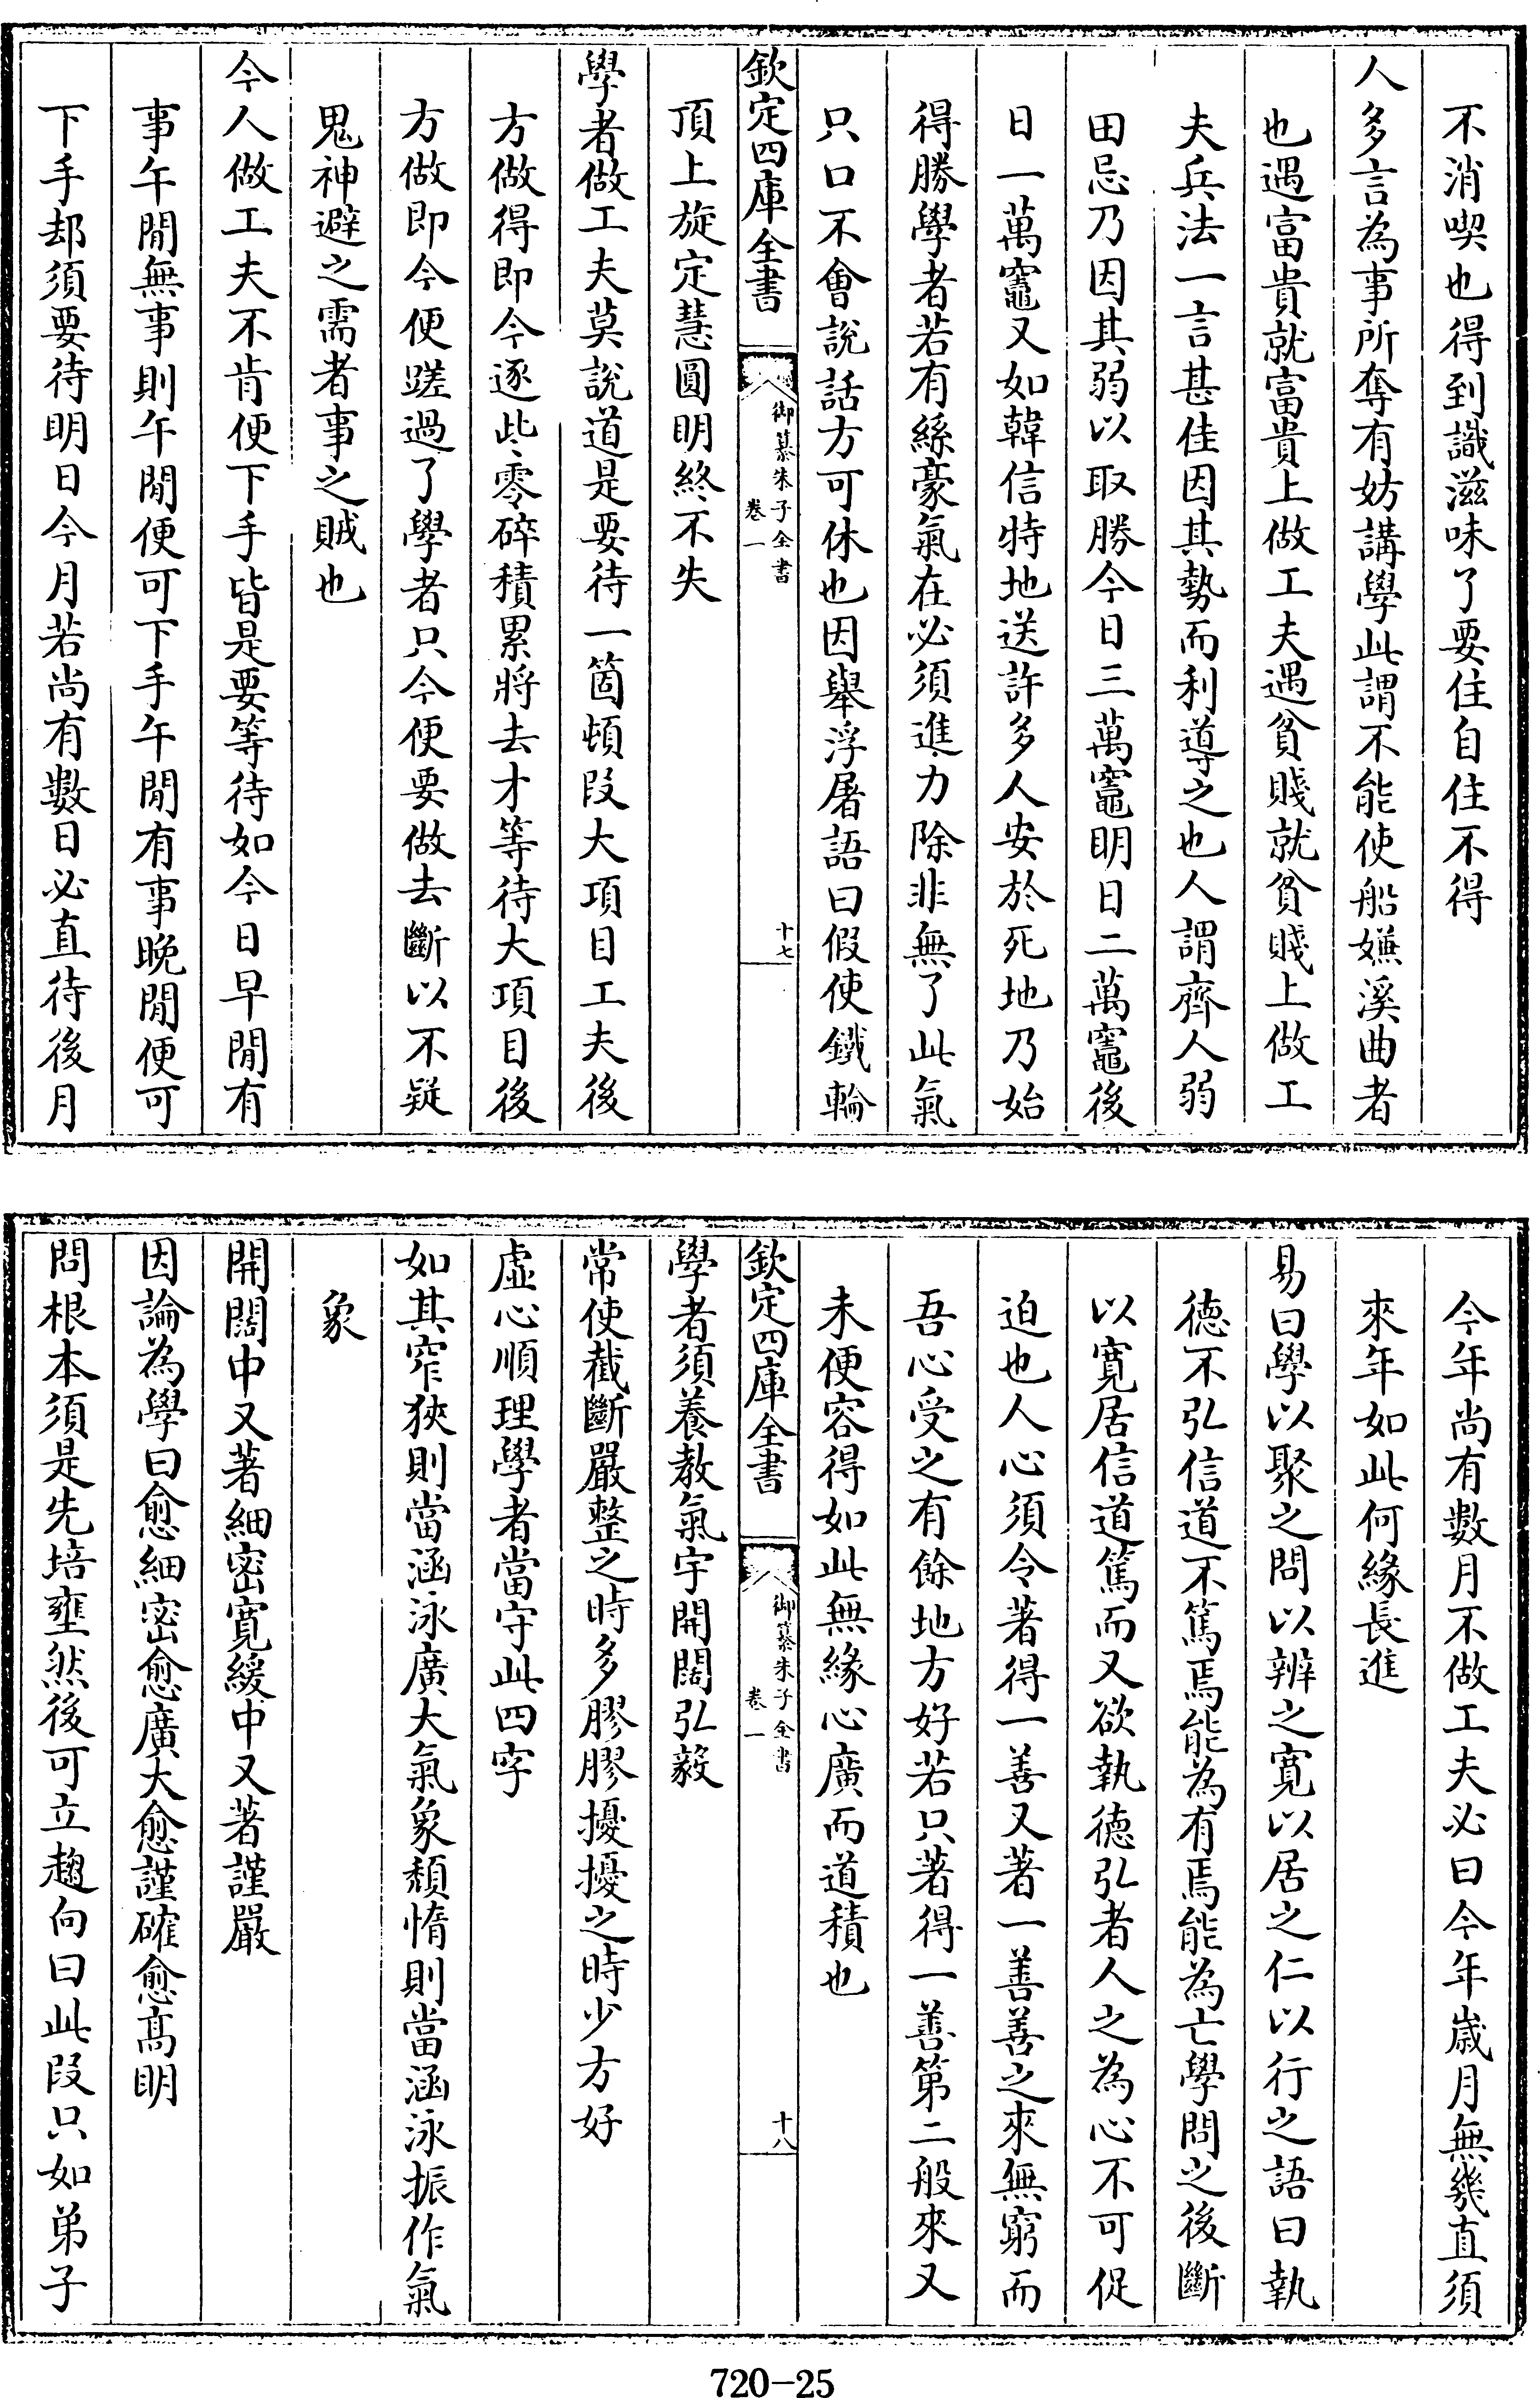 不消喫也得到識滋味了要住自住不得
人多言為事所奪有妨講學此謂不能使船嫌溪曲者
也遇富貴就富貴上做工夫遇貧賤就貧賤上做工
夫兵法一言甚佳因其勢而利導之也人謂齊人弱
田忌乃因其弱以取勝今日三萬竈明日二萬竈後
日一萬竈又如韓信特地送許多人安於死地乃始
得勝學者若有絲豪氣在必須進力除非無了此氣
只口不會說話方可休也因舉浮屠語曰假使鐵輪
欽定四庫全書
御纂朱子全書
卷一
十七
頂上旋定慧圓明終不失
學者做工夫莫說道是要待一箇頓段大項目工夫後
方做得即今逐些零碎積累將去才等待大項目後
方做即今便蹉過了學者只今便要做去斷以不疑
鬼神避之需者事之賊也
今人做工夫不肯便下手皆是要等待如今日早閒有
事午閒無事則午閒便可下手午閒有事晚閒便可
下手却須要待明日今月若尚有數日必直待後月
今年尚有數月不做工夫必曰今年歲月無幾直須
來年如此何緣長進
易曰學以聚之問以辨之寬以居之仁以行之語曰執
德不弘信道不篤焉能為有焉能為亡學問之後斷
以寛居信道篤而又欲執德弘者人之為心不可促
迫也人心須令著得一善又著一善善之來無窮而
吾心受之有餘地方好若只著得一善第二般來又
未便容得如此無緣心廣而道積也
欽定四庫全書
御纂朱子全書
卷一
十八
學者須養教氣宇開闊弘毅
常使截斷嚴整之時多膠膠擾擾之時少方好
虛心順理學者當守此四字
如其窄狹則當涵泳廣大氣象頹惰則當涵泳振作氣
象
開闊中又著細密寬緩中又著謹嚴
因論為學曰愈細密愈廣大愈謹確愈高明
問根本須是先培壅然後可立趨向曰此段只如弟子
720-25